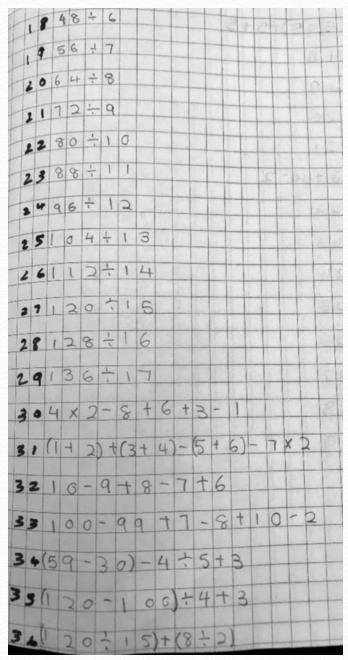 18 48 ÷ 6
19 56 ÷ 7
20 64 ÷ 8
21 72 ÷ 9
22 80 ÷ 10
23 88 ÷ 11
24 96 ÷ 12
25 104 ÷ 13
26 112 ÷ 14
27 120 ÷ 15
28 128 ÷ 16
29 136 ÷ 17
30 4 × 2 - 8 + 6 + 3 - 1
31 (1 + 2) + (3 + 4) - (5 + 6) - 7 × 2
32 10 - 9 + 8 - 7 + 6
33 100 - 99 + 7 - 8 + 10 - 2
34 (59 - 30) - 4 ÷ 5 + 3
35 (120 - 100) ÷ 4 + 3
36 (120 ÷ 15) + (8 ÷ 2)